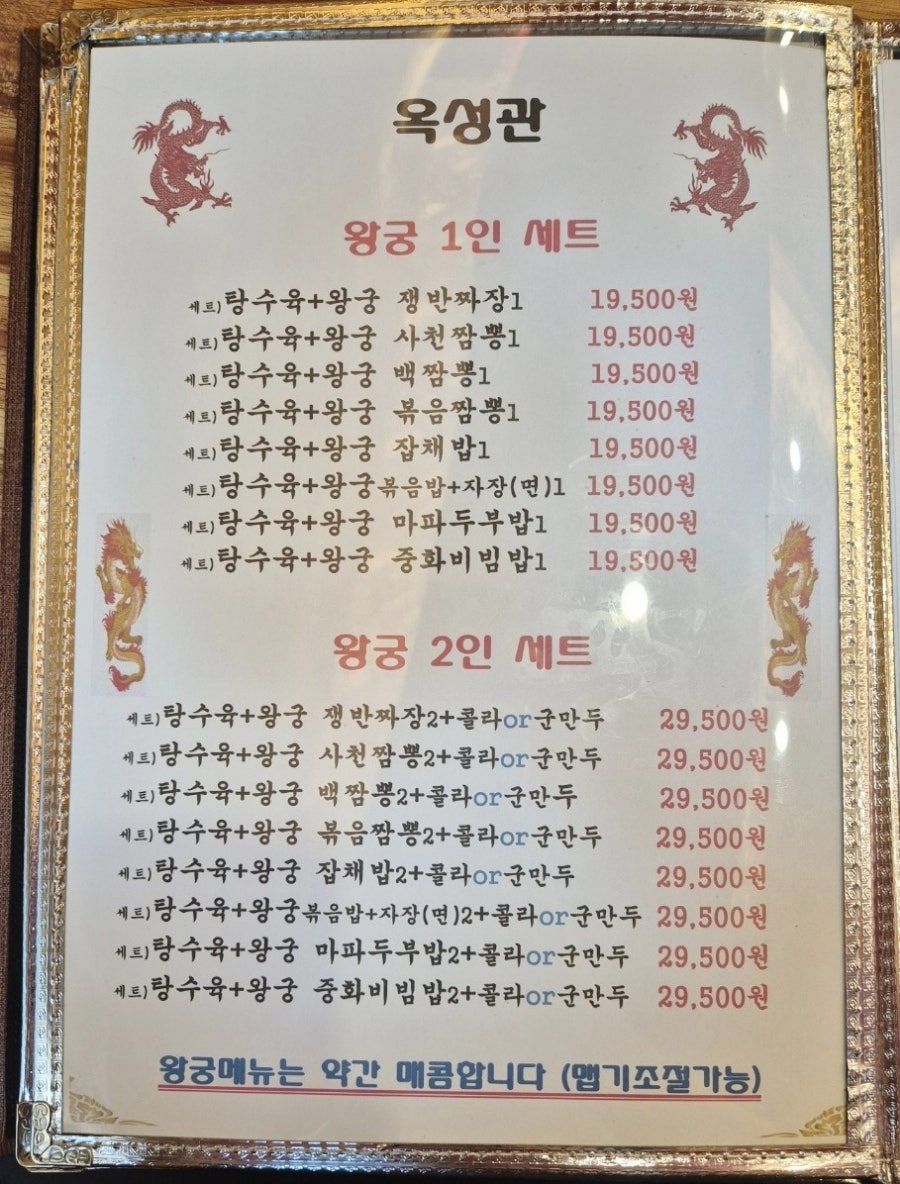 옥성관
왕궁 1인 세트
세트)탕수육+왕궁 쟁반짜장1 19,500원
세트)탕수육+왕궁 사천짬뽕1 19,500원
세트)탕수육+왕궁 백짬뽕1 19,500원
세트)탕수육+왕궁 볶음짬뽕1 19,500원
세트)탕수육+왕궁 잡채밥1 19,500원
세트)탕수육+왕궁볶음밥+자장(면)1 19,500원
세트)탕수육+왕궁 마파두부밥1 19,500원
세트)탕수육+왕궁 중화비빔밥1 19,500원
왕궁 2인 세트
세트)탕수육+왕궁 쟁반짜장2+콜라or군만두 29,500원
세트)탕수육+왕궁 사천짬뽕2+콜라or군만두 29,500원
세트)탕수육+왕궁 백짬뽕2+콜라or군만두 29,500원
세트)탕수육+왕궁 볶음짬뽕2+콜라or군만두 29,500원
세트)탕수육+왕궁 잡채밥2+콜라or군만두 29,500원
세트)탕수육+왕궁볶음밥+자장(면)2+콜라or군만두 29,500원
세트)탕수육+왕궁 마파두부밥2+콜라or군만두 29,500원
세트)탕수육+왕궁 중화비빔밥2+콜라or군만두 29,500원
왕궁메뉴는 약간 매콤합니다 (맵기조절가능)